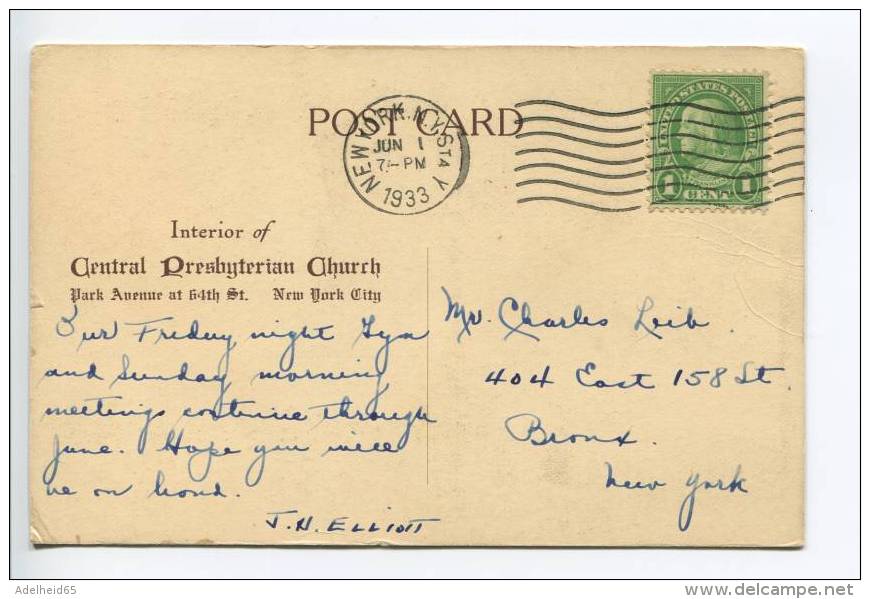 POST CARD
NEW YORK, N.Y. STA Y
JUN 1
7 - PM
1933
UNITED STATES POSTAGE
1 CENT 1
Interior of
Central Presbyterian Church
Park Avenue at 64th St. New York City
Our Friday night Gym
and Sunday morning
meetings continue through
June. Hope you will
be on hand.
J. H. ELLIOTT
Mr. Charles Leib.
404 East 158 St.
Bronx.
New York
Adelheid65
delcampe.net